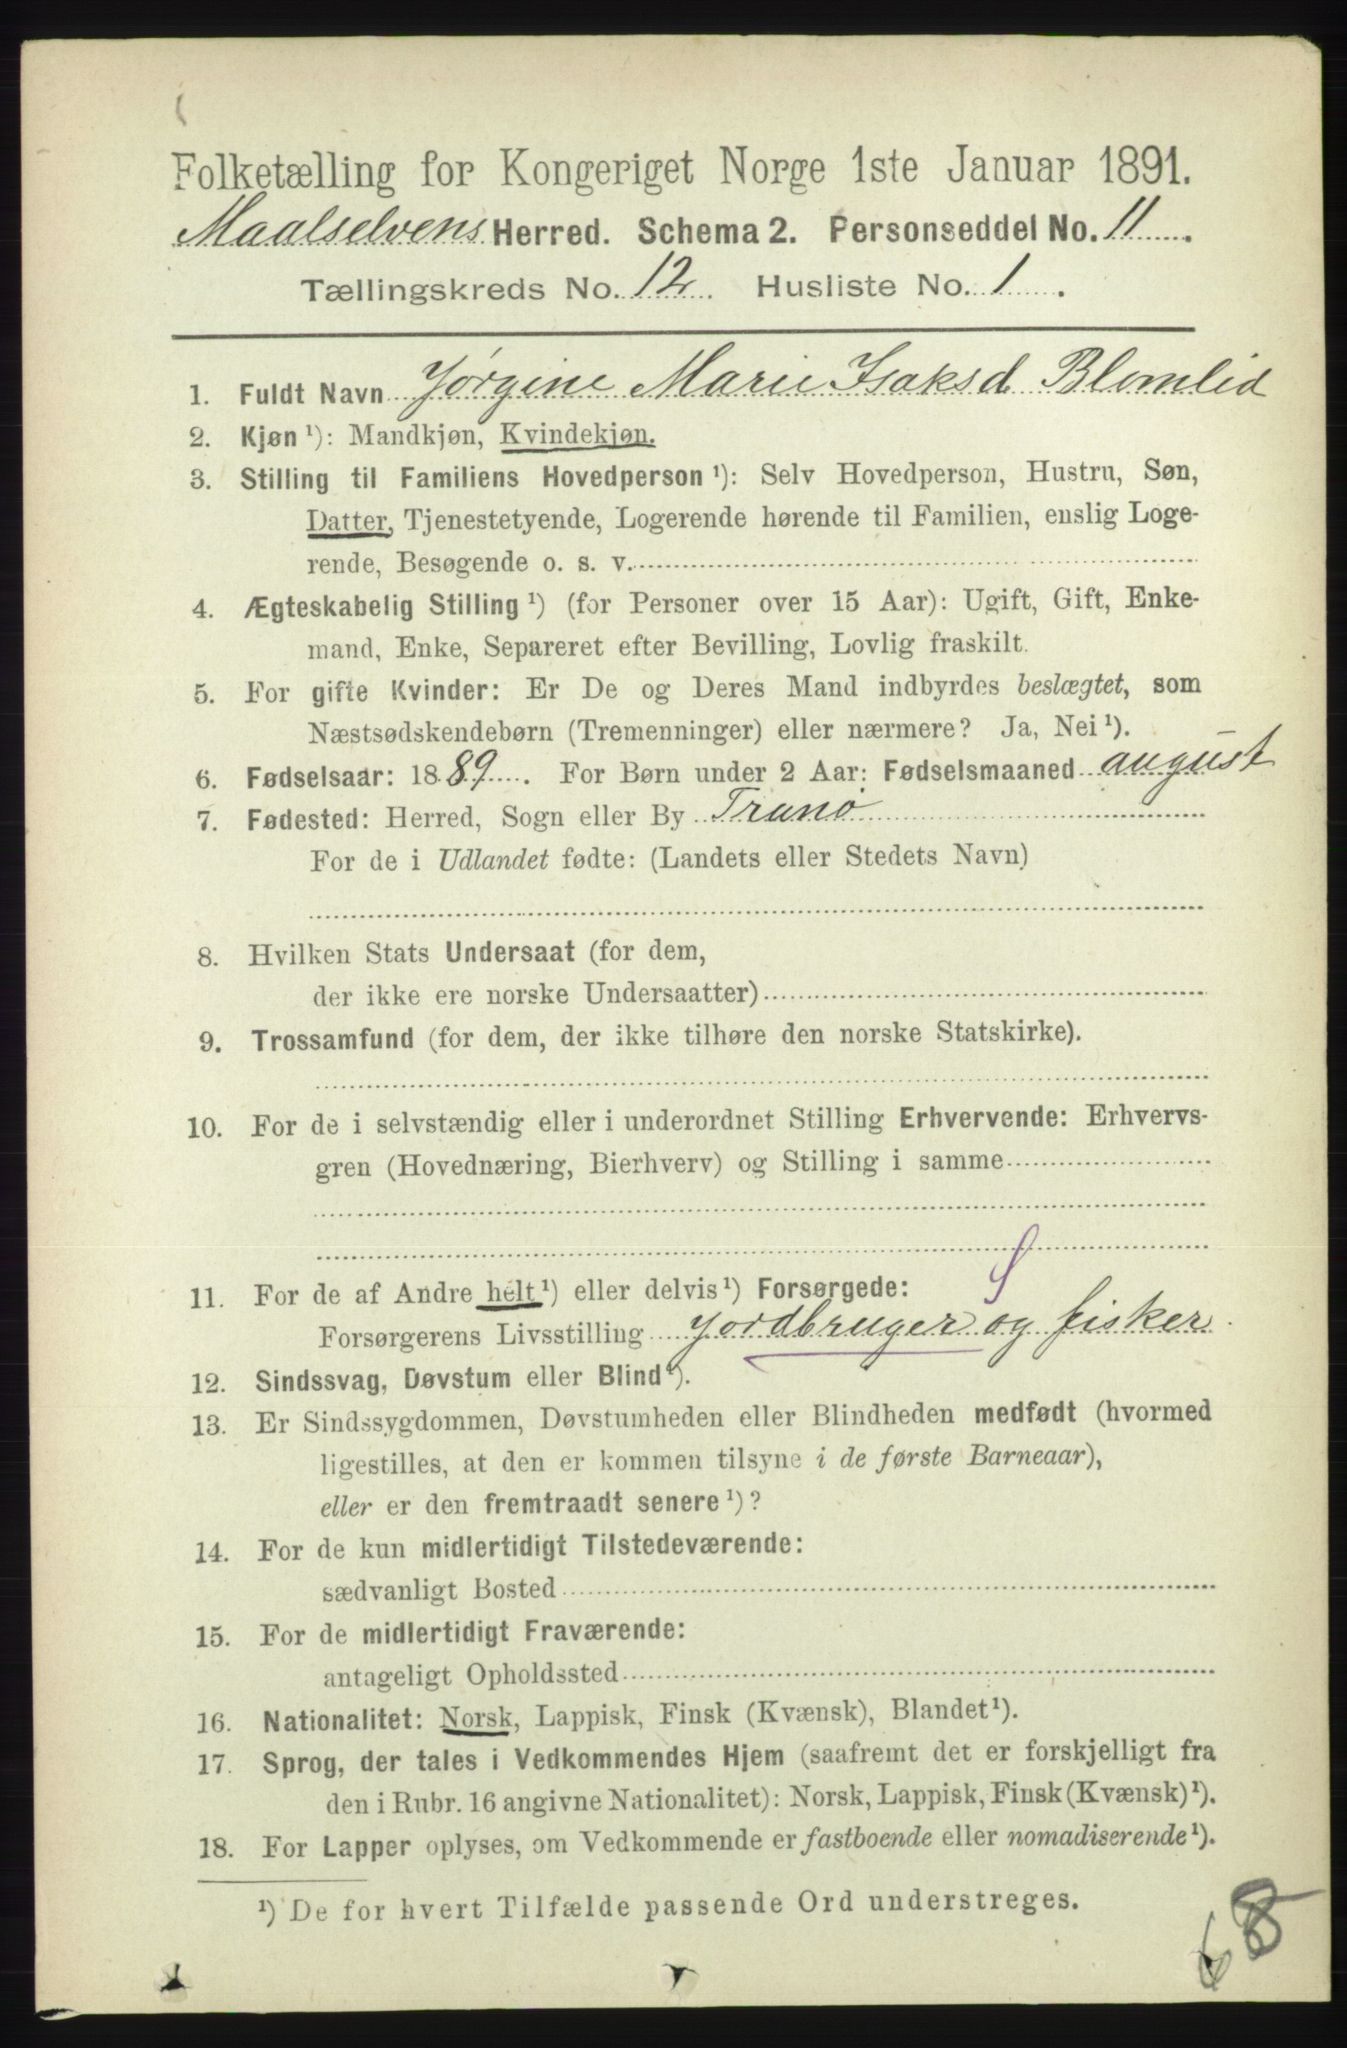 Folketælling for Kongeriget Norge 1ste Januar 1891.
Maalselvens Herred. Schema 2. Personseddel No. 11.
Tællingskreds No. 12. Husliste No. 1.
1. Fuldt Navn Jørgine Marie Isaksd Blomlid
2. Kjøn ¹): Mandkjøn, Kvindekjøn.
3. Stilling til Familiens Hovedperson ¹): Selv Hovedperson, Hustru, Søn,
Datter, Tjenestetyende, Logerende hørende til Familien, enslig Loge-
rende, Besøgende o. s. v.
4. Ægteskabelig Stilling ¹) (for Personer over 15 Aar): Ugift, Gift, Enke-
mand, Enke, Separeret efter Bevilling, Lovlig fraskilt.
5. For gifte Kvinder: Er De og Deres Mand indbyrdes beslægtet, som
Næstsødskendebørn (Tremenninger) eller nærmere? Ja, Nei ¹).
6. Fødselsaar: 1889. For Børn under 2 Aar: Fødselsmaaned august
7. Fødested: Herred, Sogn eller By Tranø
For de i Udlandet fødte: (Landets eller Stedets Navn)
8. Hvilken Stats Undersaat (for dem,
der ikke ere norske Undersaatter)
9. Trossamfund (for dem, der ikke tilhøre den norske Statskirke).
10. For de i selvstændig eller i underordnet Stilling Erhvervende: Erhvervs-
gren (Hovednæring, Bierhverv) og Stilling i samme
11. For de af Andre helt ¹) eller delvis ¹) Forsørgede:
Forsørgerens Livsstilling Jordbruger og fisker
12. Sindssvag, Døvstum eller Blind ¹).
13. Er Sindssygdommen, Døvstumheden eller Blindheden medfødt (hvormed
ligestilles, at den er kommen tilsyne i de første Barneaar),
eller er den fremtraadt senere ¹)?
14. For de kun midlertidigt Tilstedeværende:
sædvanligt Bosted
15. For de midlertidigt Fraværende:
antageligt Opholdssted
16. Nationalitet: Norsk, Lappisk, Finsk (Kvænsk), Blandet ¹).
17. Sprog, der tales i Vedkommendes Hjem (saafremt det er forskjelligt fra
den i Rubr. 16 angivne Nationalitet): Norsk, Lappisk, Finsk (Kvænsk) ¹).
18. For Lapper oplyses, om Vedkommende er fastboende eller nomadiserende ¹).
¹) De for hvert Tilfælde passende Ord understreges.
68